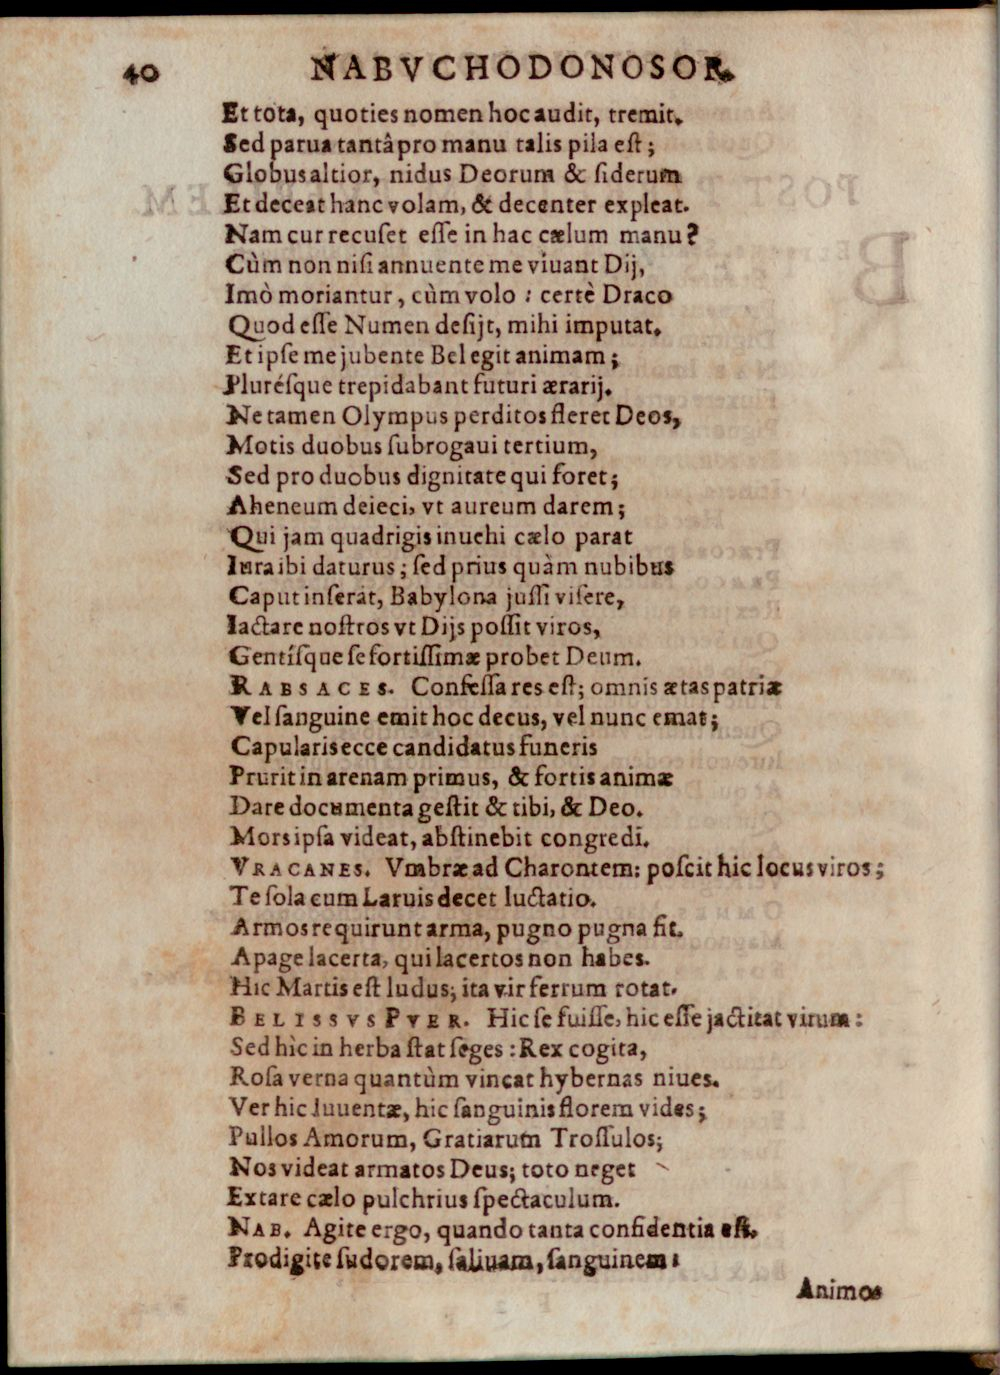 40 NABVCHODONOSOR.
Et tota, quoties nomen hoc audit, tremit.
Sed parua tantâ pro manu talis pila eſt;
Globus altior, nidus Deorum & ſiderum
Et deceat hanc volam, & decenter expleat.
Nam cur recuſet eſſe in hac cælum manu?
Cùm non niſi annuente me viuant Dij,
Imò moriantur, cùm volo : certè Draco
Quod eſſe Numen deſijt, mihi imputat.
Et ipſe me jubente Bel egit animam;
Pluréſque trepidabant futuri ærarij.
Ne tamen Olympus perditos fleret Deos,
Motis duobus ſubrogaui tertium,
Sed pro duobus dignitate qui foret;
Aheneum deieci, vt aureum darem;
Qui jam quadrigis inuehi cælo parat
Iura ibi daturus; ſed prius quàm nubibus
Caput inſerat, Babylona juſſi viſere,
Iactare noſtros vt Dijs poſſit viros,
Gentíſque ſe fortiſſimæ probet Deum.
RABSACES. Confeſſa res eſt; omnis ætas patriæ
Vel ſanguine emit hoc decus, vel nunc emat;
Capularis ecce candidatus funeris
Prurit in arenam primus, & fortis animæ
Dare documenta geſtit & tibi, & Deo.
Mors ipſa videat, abſtinebit congredi.
VRACANES. Vmbræ ad Charontem: poſcit hic locus viros;
Te ſola cum Laruis decet luctatio.
Armos requirunt arma, pugno pugna fit.
Apage lacerta, qui lacertos non habes.
Hic Martis eſt ludus; ita vir ferrum rotat.
BELISSVS PVER. Hic ſe fuiſſe, hic eſſe jactitat virum:
Sed hìc in herba ſtat ſeges : Rex cogita,
Roſa verna quantùm vincat hybernas niues.
Ver hic Iuuentæ, hic ſanguinis florem vides;
Pullos Amorum, Gratiarum Troſſulos;
Nos videat armatos Deus; toto neget
Extare cælo pulchrius ſpectaculum.
NAB. Agite ergo, quando tanta confidentia eſt.
Prodigite ſudorem, ſaliuam, ſanguinem:
Animos